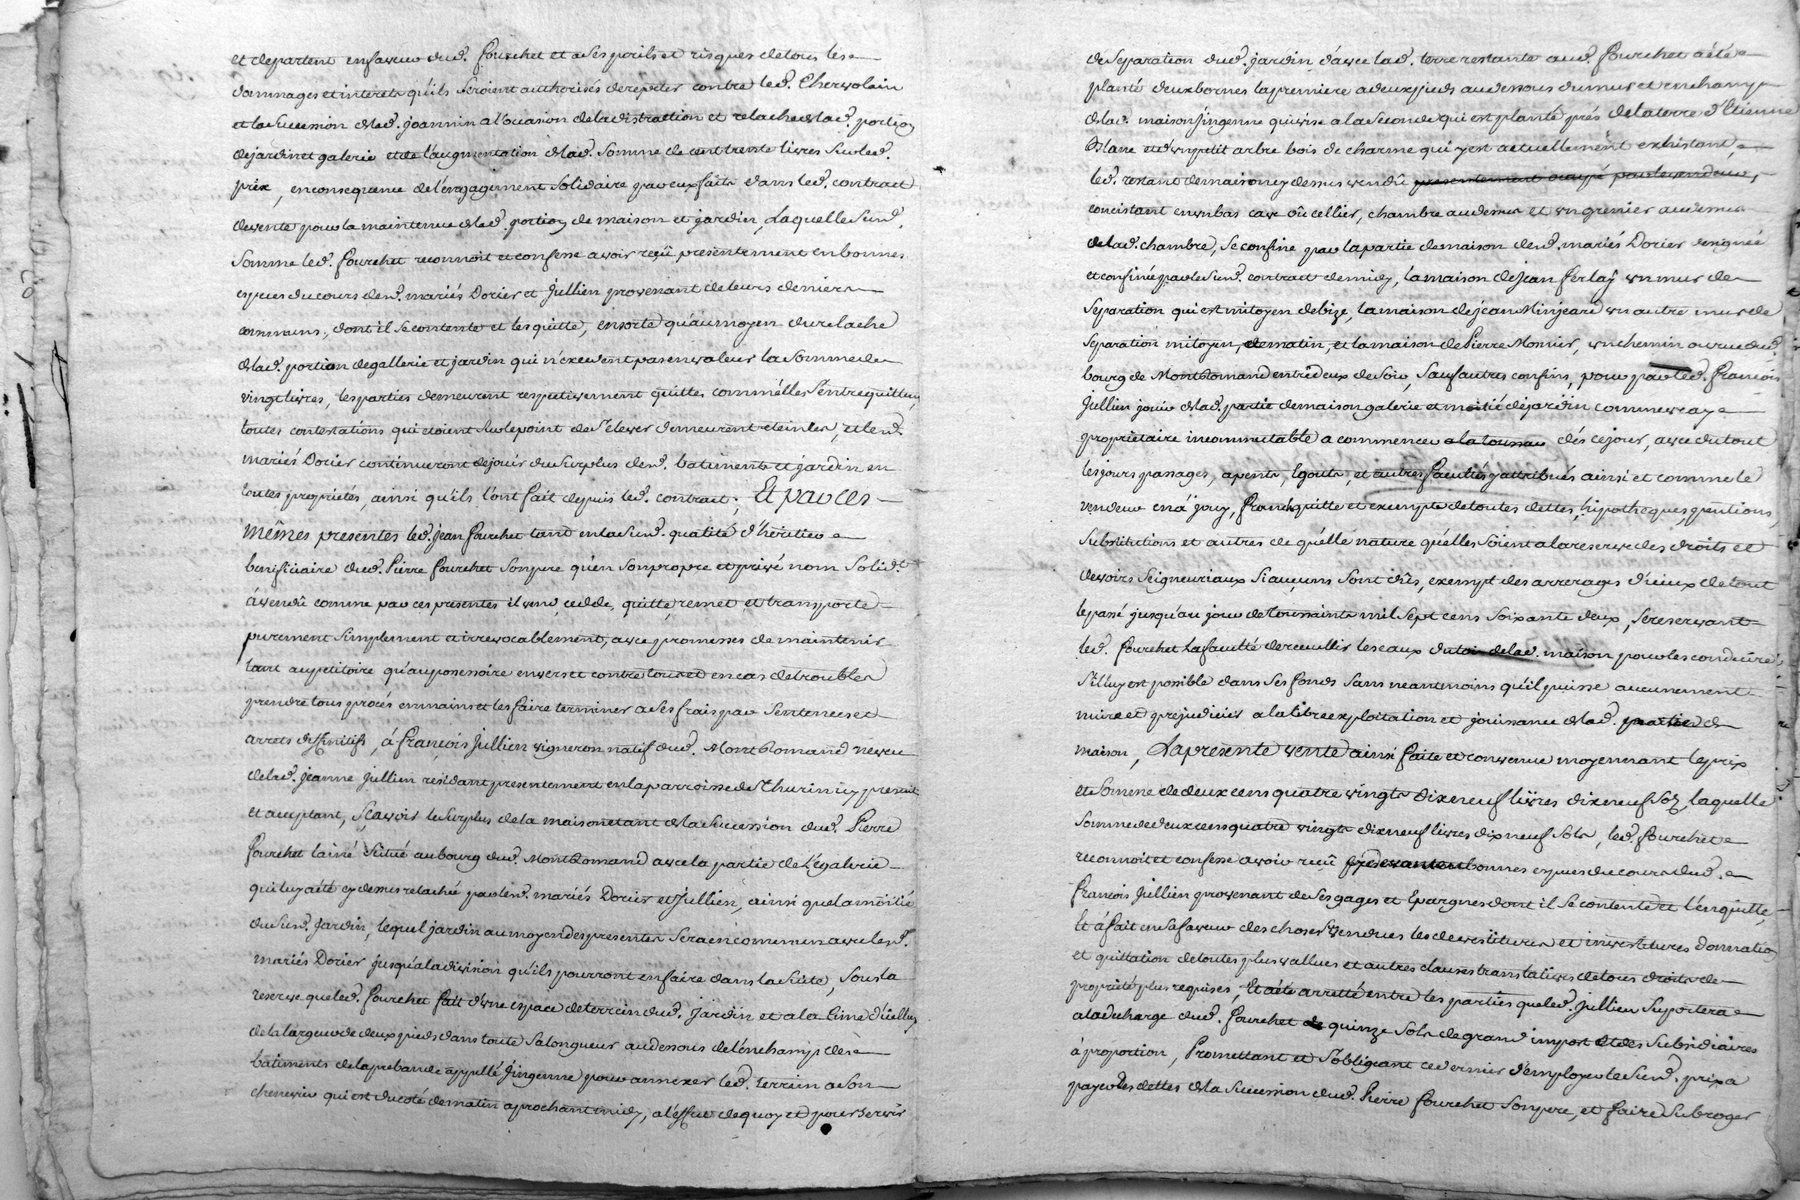 et departent en faveur dud. Fourchet et a ses perils et risques de tous les
dommages et interets qu'ils seroient authorisés de repeter contre led. Chervolain
et la succession delad. Joannin a l'occasion de la distraction et relache delad. portion
de jardin et galerie et de l'augmentation delad. somme de cent trente livres sur led.
prix, en consequence de l'engagement solidaire par eux fait dans led. contract
de vente pour la maintenue delad. portion de maison et jardin, Laquelle susd.
somme led. Fourchet reconnoit et confesse avoir reçû presentement en bonnes
especes du cours desd. mariés Dorier et Jullien provenant de leurs deniers
communs, dont il se contente et les quitte, ensorte qu'au moyen du relache
delad. portion de gallerie et jardin qui n'excedent pas en valeur la somme de
vingt livres, les parties demeurent respectivement quittes comm'elles s'entrequittent,
toutes contestations qui etoient sur le point de s'elever demeurent eteintes, et lesd.
mariés Dorier continueront de jouir du surplus desd. batiments et jardin en
toutes proprietés, ainsi qu'ils l'ont fait depuis led. contract; Et par ces
mêmes presentes led. Jean Fourchet tant en lasusd. qualité d'héritier
beneficiaire dud. Pierre Fourchet son pere qu'en son propre et privé nom solid.t
á vendû comme par ces presentes il vend, cedde, quitte, remet et transporte
purement simplement et irrevocablement, avec promesses de maintenir
tant au petitoire qu'au possessoire envers et contre tous et en cas de troubles
prendre tous procés en mains et les faire terminer a ses frais par sentences et
arrets deffinitifs, á François Jullien vigneron natif dud. Montromand neveu
delad. Jeanne Jullien residant presentement en la parroisse de St Thurin icy present
et acceptant, Sçavoir le surplus de la maison etant dela succession dud. Pierre
Fourchet lainé situé au bourg dud. Montromand avec la partie de l'égalerie
qui luy a été cy dessus relachée par lesd. mariés Dorier et Jullien, ainsi que la moitié
du susd. Jardin, lequel jardin au moyen des presentes sera en commun avec lesd.
mariés Dorier jusqu'a la division qu'ils pourront en faire dans la suite, sous la
reserve que led. Fourchet fait d'une espace de terrein dud. Jardin et a la cime d'icelluy
de la largeur de deux pieds dans toute sa longueur au dessous de l'enchamp des
batiments de la prebande appellé Jingenne pour annexer led. terrein a son
chenevier qui est du coté de matin aprochant midy, a l'effet de quoy et pour servir
de separation dud. jardin d'avec lad. terre restante aud. Fourchet a été
planté deux bornes la premiere a deux pieds au dessous du mur et enchamp
delad. maison Jingenne qui vise a la seconde qui est planté prés de la terre d'Etienne
Blanc et d'un petit arbre bois de charme qui y est actuellement exhistant,
led. restant de maison cy dessus vendû presentement occupé par le vendeur,
concistant en un bas cave oû cellier, chambre au dessus et un grenier au dessus
delad. chambre, se confine par la partie de maison desd. mariés Dorier designée
et confinée par le susd. contract de midy, la maison de Jean Ferlay un mur de
separation qui est mitoyen de bize, la maison de Jean Minjeard un autre mur de
separation mitoyen, de matin, et la maison de Pierre Monier, un chemin ou rue dud.
bourg de Montromand entre deux de soir, sauf autres confins, pour par led. François
Jullien jouir delad. partie de maison galerie et moitié de jardin comme vray
proprietaire incommutable a commencer a la toussaint dés ce jour, avec du tout
les jours passages, apents, Egouts, et autres faculités y attribués ainsi et comme le
vendeur en á jouy, franc, quitte et exempte de toutes dettes, hipotheques, pentions,
substitutions et autres de quélle nature qu'elles soient a la reserve des droits et
devoirs seigneuriaux si aucuns sont dûs, exempt des arrerages d'iceux de tout
le passé jusqu'au jour de toussaints mil sept cens soixante deux, se reservant
led. Fourchet La faculté de recuellir les eaux du toit delad. maison pour les conduire
s'il luy est possible dans ses fonds sans neantmoins qu'il puisse aucunement
nuire et prejudicier a la libre exploitation et jouissance delad. partie de
maison, La presente vente ainsi faite et convenue moyennant le prix
et somme de deux cens quatre vingts dixneuf livres dixneuf sols, laquelle
somme de deux cens quatre vingts dixneuf livres dixneuf sols, led. Fourchet
reconnoit et confesse avoir reçû bonnes especes du cours dud.
François Jullien provenant de ses gages et Epargnes dont il se contente et l'en quitte,
Et á fait en sa faveur des choses vendues les devestitures et investitures donnation
et quittation de toutes plus vallues et autres clauses translatives de tous droits de
propriété plus requises, Et a été arretté entre les parties que led. Jullien suportera
a la decharge dud. Fourchet de quinze sols de grand impost et des subsidiaires
á proportion, Promettant et s'obligeant ce dernier d'employer le susd. prix a
payer les dettes dela succession dud. Pierre Fourchet son pere, et faire subroger